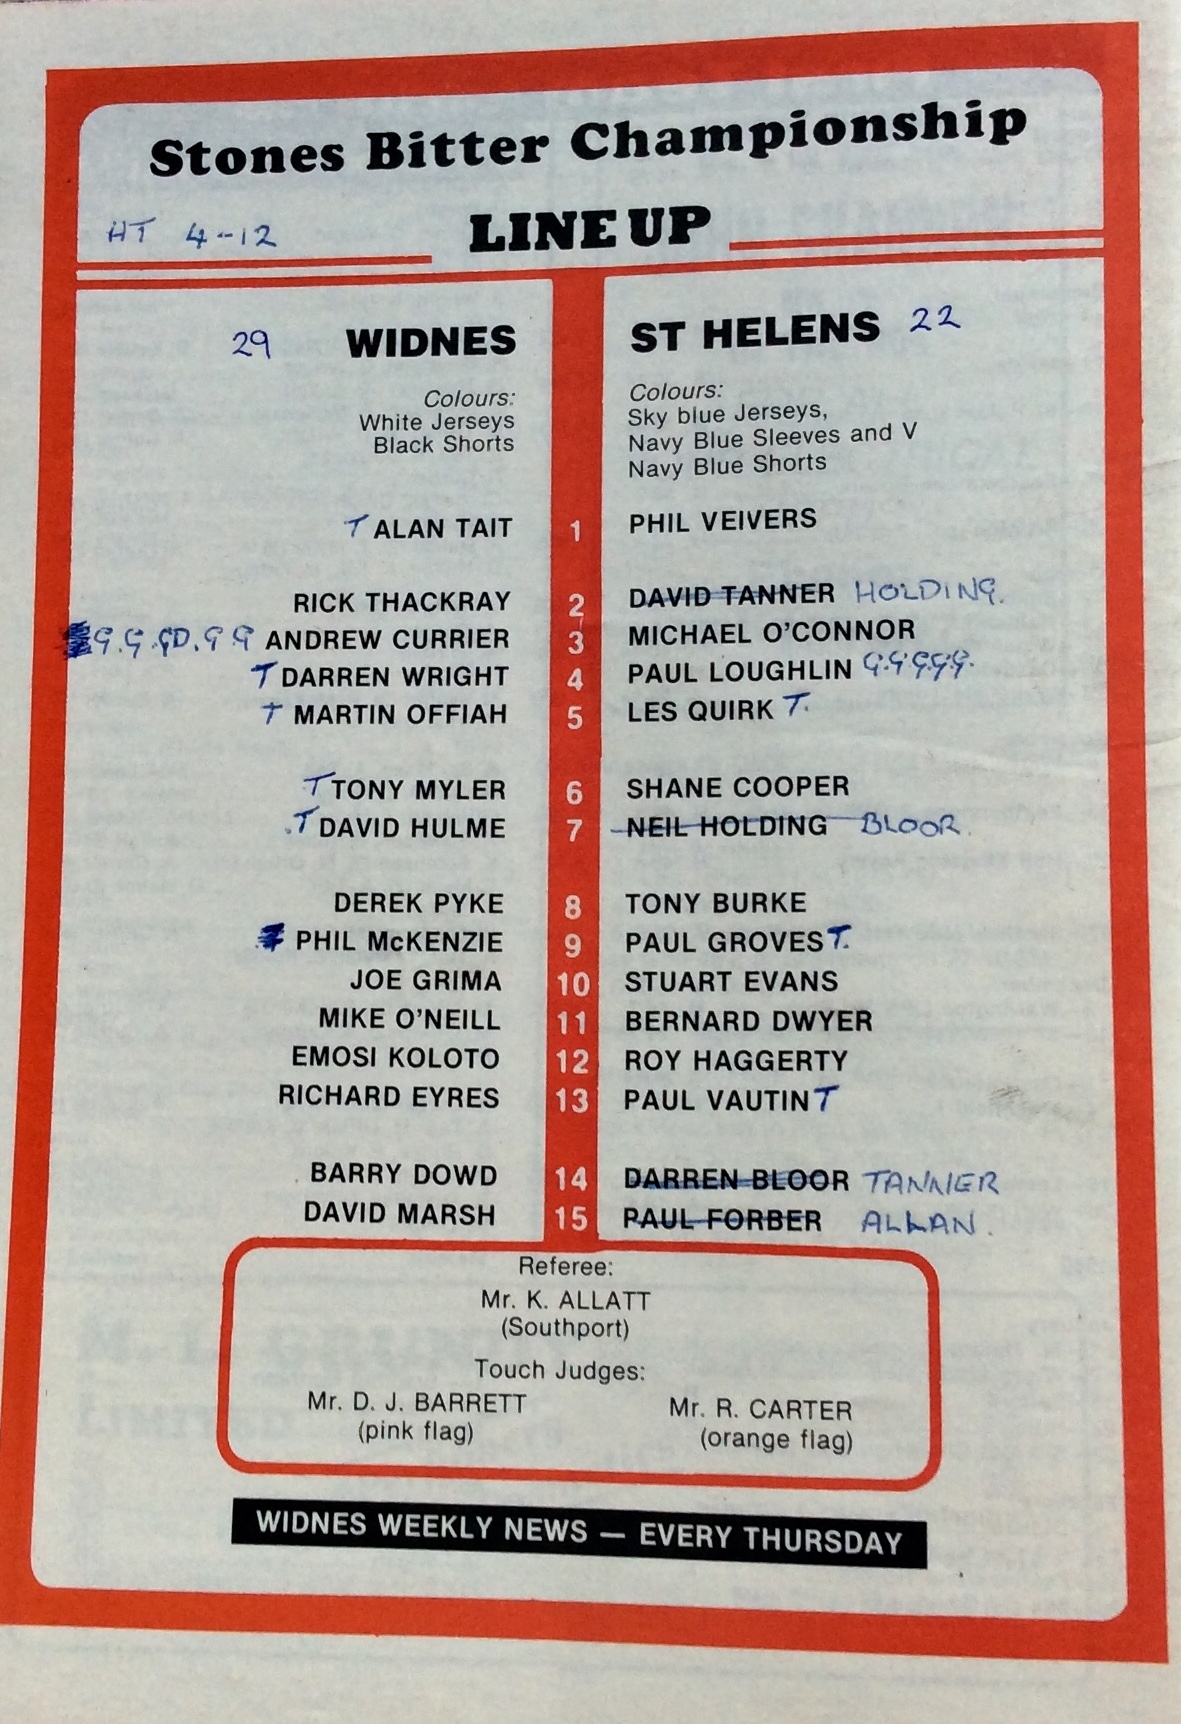 Stones Bitter Championship
HT 4-12
LINE UP
29 WIDNES
Colours:
White Jerseys
Black Shorts
ST HELENS 22
Colours:
Sky blue Jerseys,
Navy Blue Sleeves and V
Navy Blue Shorts
T ALAN TAIT 1 PHIL VEIVERS
RICK THACKRAY 2 DAVID TANNER HOLDING.
G.G.GD.GG ANDREW CURRIER 3 MICHAEL O'CONNOR
T DARREN WRIGHT 4 PAUL LOUGHLIN G.G.G.G.G.
T MARTIN OFFIAH 5 LES QUIRK T.
T TONY MYLER 6 SHANE COOPER
.T DAVID HULME 7 NEIL HOLDING BLOOR.
DEREK PYKE 8 TONY BURKE
PHIL McKENZIE 9 PAUL GROVES T.
JOE GRIMA 10 STUART EVANS
MIKE O'NEILL 11 BERNARD DWYER
EMOSI KOLOTO 12 ROY HAGGERTY
RICHARD EYRES 13 PAUL VAUTIN T
BARRY DOWD 14 DARREN BLOOR TANNER
DAVID MARSH 15 PAUL FORBER ALLAN.
Referee:
Mr. K. ALLATT
(Southport)
Touch Judges:
Mr. D. J. BARRETT
(pink flag)
Mr. R. CARTER
(orange flag)
WIDNES WEEKLY NEWS — EVERY THURSDAY